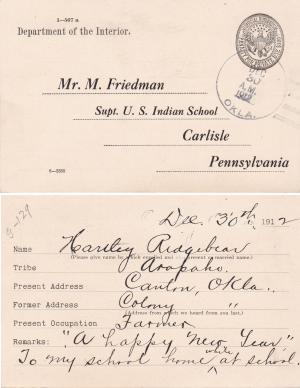 1-567 a
Department of the Interior.
DEC
30
A.M.
1912
OKLA.
Mr. M. Friedman
Supt. U. S. Indian School
Carlisle
Pennsylvania
Dec. 30th, 1912
Name Hartley Ridgebear
(Please give name by which enrolled and present or married name.)
Tribe Arapaho.
Present Address Canton, Okla.
Former Address Colony "
(Address from which we heard from you last.)
Present Occupation Farmer
Remarks: "A happy New Year,"
To my school home while at school.